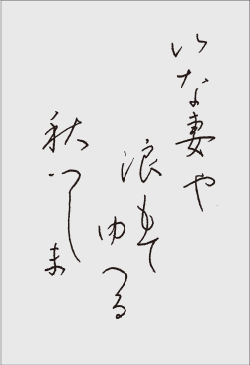 いな妻や
浪もて
ゆへる
秋つしま